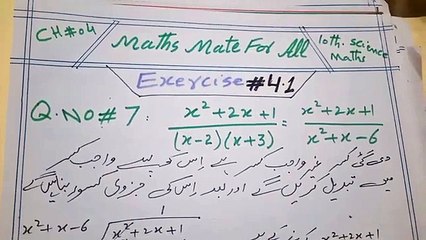 CH#04
Maths Mate For All
10th. science
Maths
Exercise #4.1
Q.NO#7: x²+2x+1/(x-2)(x+3) = x²+2x+1/x²+x-6
دی گئی کسر غیر واجب کسر ہے اِس کو پہلے واجب کسر
میں تبدیل کریں گے اور بعد اِس کی جزوی کسور بنائیں گے
1
x²+x-6 √x²+2x+1
x²+2x+1